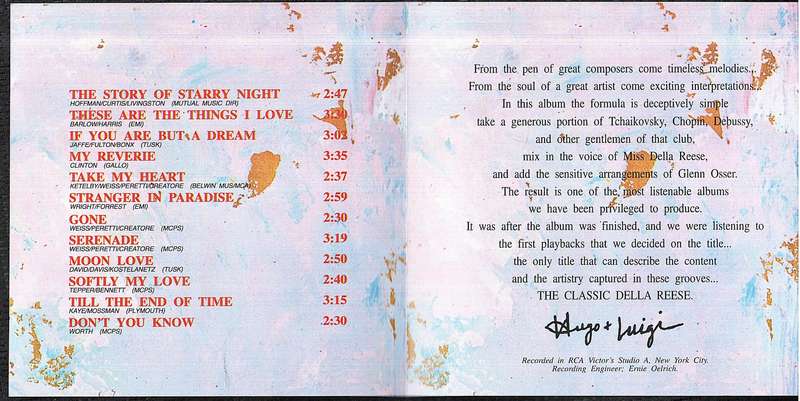 THE STORY OF STARRY NIGHT 2:47
HOFFMAN/CURTIS/LIVINGSTON (MUTUAL MUSIC DIR)
THESE ARE THE THINGS I LOVE 3:30
BARLOW/HARRIS (EMI)
IF YOU ARE BUT A DREAM 3:03
JAFFE/FULTON/BONX (TUSK)
MY REVERIE 3:35
CLINTON (GALLO)
TAKE MY HEART 2:37
KETELBY/WEISS/PERETTI/CREATORE (BELWIN MUS/MCA)
STRANGER IN PARADISE 2:59
WRIGHT/FORREST (EMI)
GONE 2:30
WEISS/PERETTI/CREATORE (MCPS)
SERENADE 3:19
WEISS/PERETTI/CREATORE (MCPS)
MOON LOVE 2:50
DAVID/DAVIS/KOSTELANETZ (TUSK)
SOFTLY MY LOVE 2:40
TEPPER/BENNETT (MCPS)
TILL THE END OF TIME 3:15
KAYE/MOSSMAN (PLYMOUTH)
DON'T YOU KNOW 2:30
WORTH (MCPS)
From the pen of great composers come timeless melodies...
From the soul of a great artist come exciting interpretations...
In this album the formula is deceptively simple
take a generous portion of Tchaikovsky, Chopin, Debussy,
and other gentlemen of that club,
mix in the voice of Miss Della Reese,
and add the sensitive arrangements of Glenn Osser.
The result is one of the most listenable albums
we have been privileged to produce.
It was after the album was finished, and we were listening to
the first playbacks that we decided on the title...
the only title that can describe the content
and the artistry captured in these grooves...
THE CLASSIC DELLA REESE.
Hugo + Luigi
Recorded in RCA Victor's Studio A, New York City.
Recording Engineer; Ernie Oelrich.